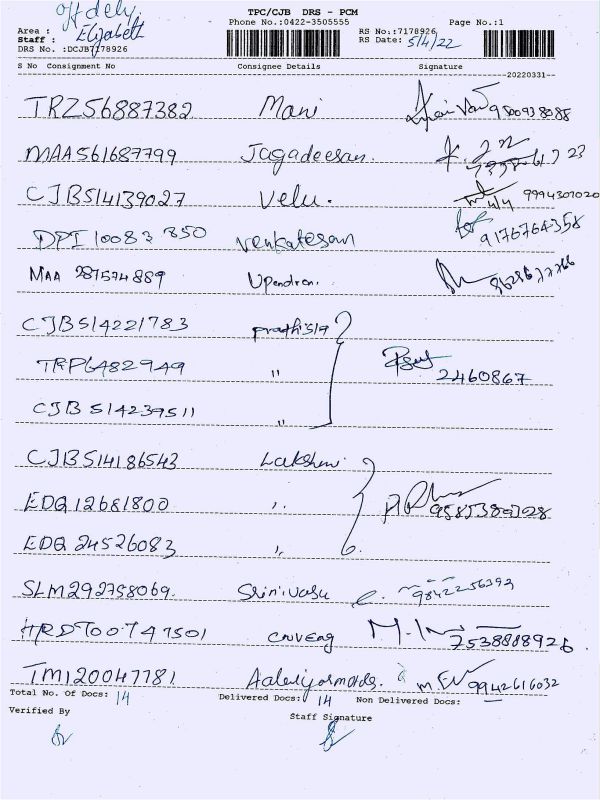 off dely.
TPC/CJB DRS - PCM
Area :
Phone No.:0422-3505555 Page No.:1
Staff : Elizabeth RS No.:7178926
DRS No. :DCJB7178926 RS Date: 5/4/22
S No Consignment No Consignee Details Signature
20220331
TRZ56887382 Mani 9500938088
MAA561687799 Jagadeesan.
CJB514139027 Velu. 4/4 9994307020
DPI10083850 Venkatesan 9176764358
MAA 287574889 Upendran.
CJB514221783 prathista
TRP6482949 " 2460867
CJB514239511 "
CJB514186543 Lakshmi
EDQ12681800 "
EDQ 24526083 "
SLM292758069. Srinivasu 9842256393
HRDT00747501 7538888926
TM120047781 9942616032
Total No. Of Docs: 14 Delivered Docs: 14 Non Delivered Docs:
Verified By Staff Signature